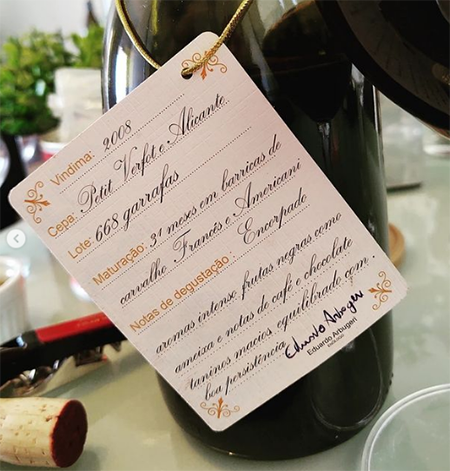 Vindima: 2008
Cepa: Petit Verfot e Alicante.
Lote: 668 garrafas
Maturação: 31 meses em barricas de
carvalho Francês e Americani
Notas de degustação: Encorpado
aromas intenso, frutas negras como
ameixa e notas de café e chocolate
taninos macios, equilibrado com.
boa persistência.
Eduardo Arbugeri
Eduardo Arbugeri